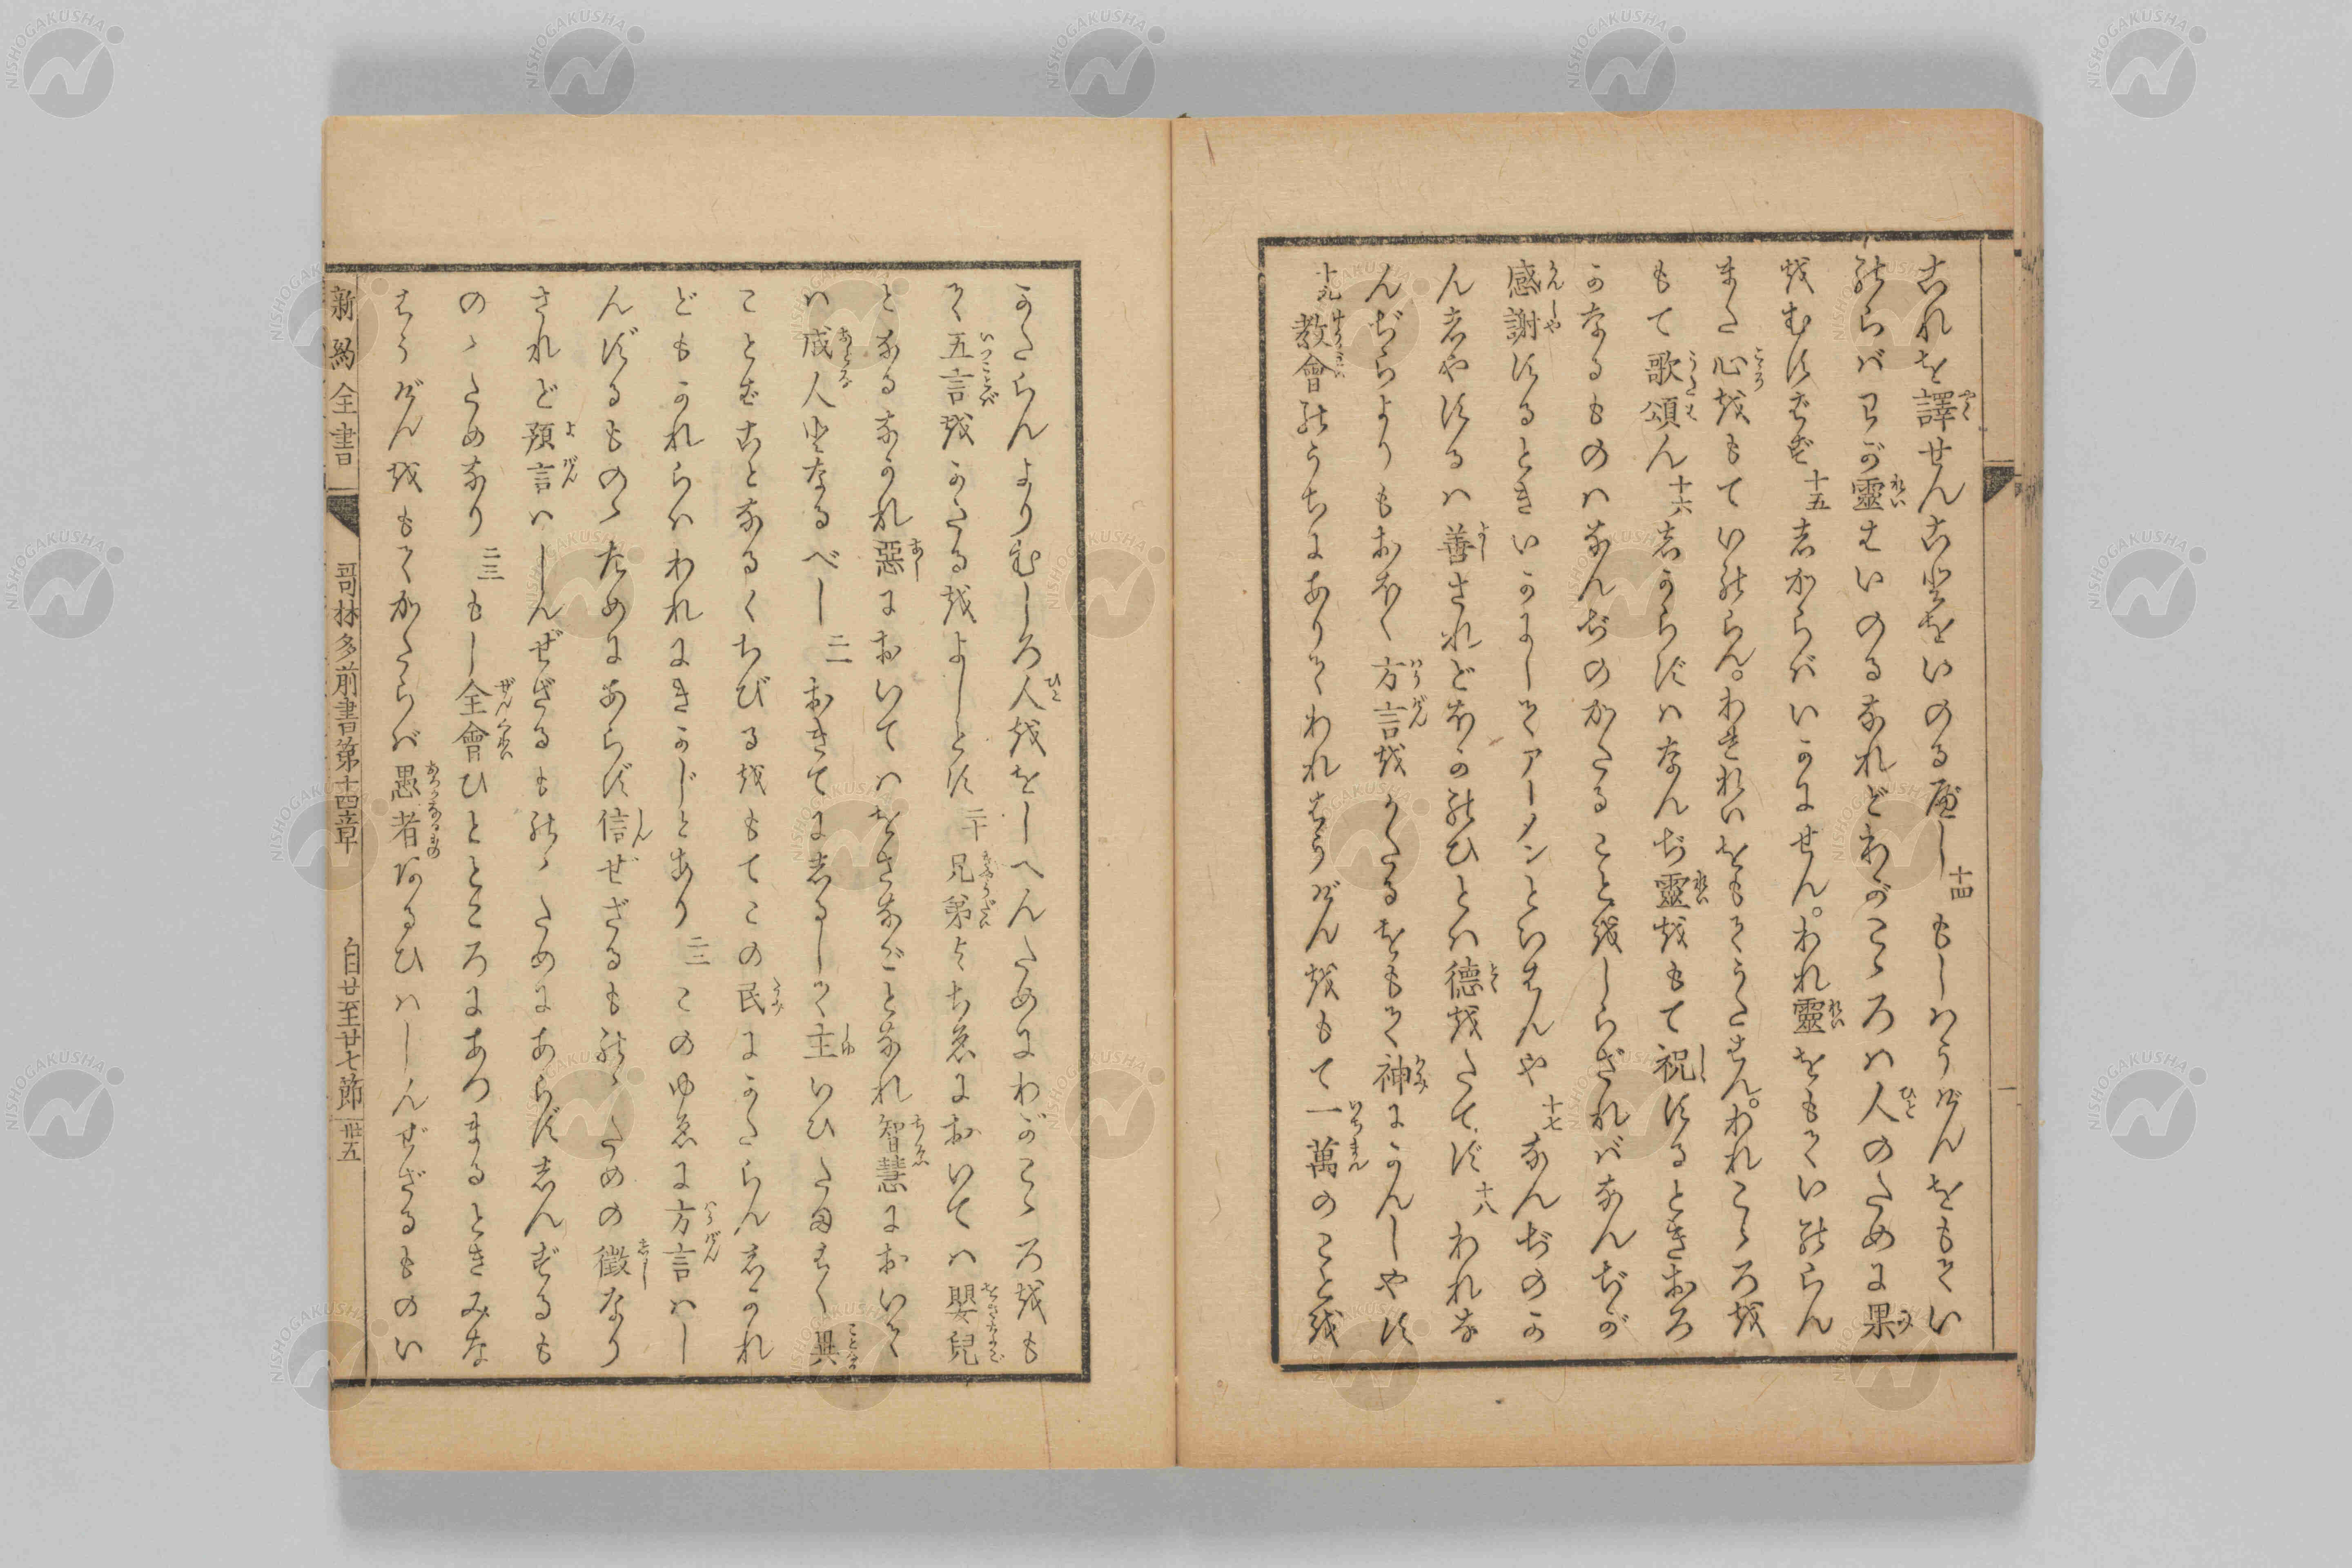 これを譯せんことをいのるべし十四もしはうげんをもてい
のらばわが靈はいのるなれどわがこゝろは人のために果
をむすばず十五しからばいかにせん。われ靈をもていのらん
また心をもていのらん。われれいをもてうたはん。われこゝろを
もて歌頌ん十六しからずはなんぢ靈をもて祝するときおろ
かなるものはなんぢのかたることをしらざればなんぢが
感謝するときいかにしてアーメンといはんや十七なんぢのか
んしやするは善されどほかのひとは徳をたてず十八われな
んぢらよりもおほく方言をかたるをもて神にかんしやす
十九教會のうちにありてわれはうげんをもて一萬のことを
かたらんよりむしろ人ををしへんためにわがこゝろをも
て五言をかたるをよしとす二十兄弟よちゑにおいては嬰兒
となるなかれ惡においてはをさなごとなれ智慧において
は成人となるべし二一おきてにしるして主いひたまはく異
ことばことなるくちびるをもてこの民にかたらんしかれ
どもかれらはわれにきかじとあり二二このゆゑに方言はし
んずるものゝためにあらず信ぜざるものゝための徴なり
されど預言はしんぜざるものゝためにあらずしんずるも
のゝためなり二三もし全會ひとところにあつまるときみな
はうげんをもてかたらば愚者あるひはしんぜざるものい
新約全書
哥林多前書第十四章
自廿至廿七節
卅五
NISHOGAKUSHA